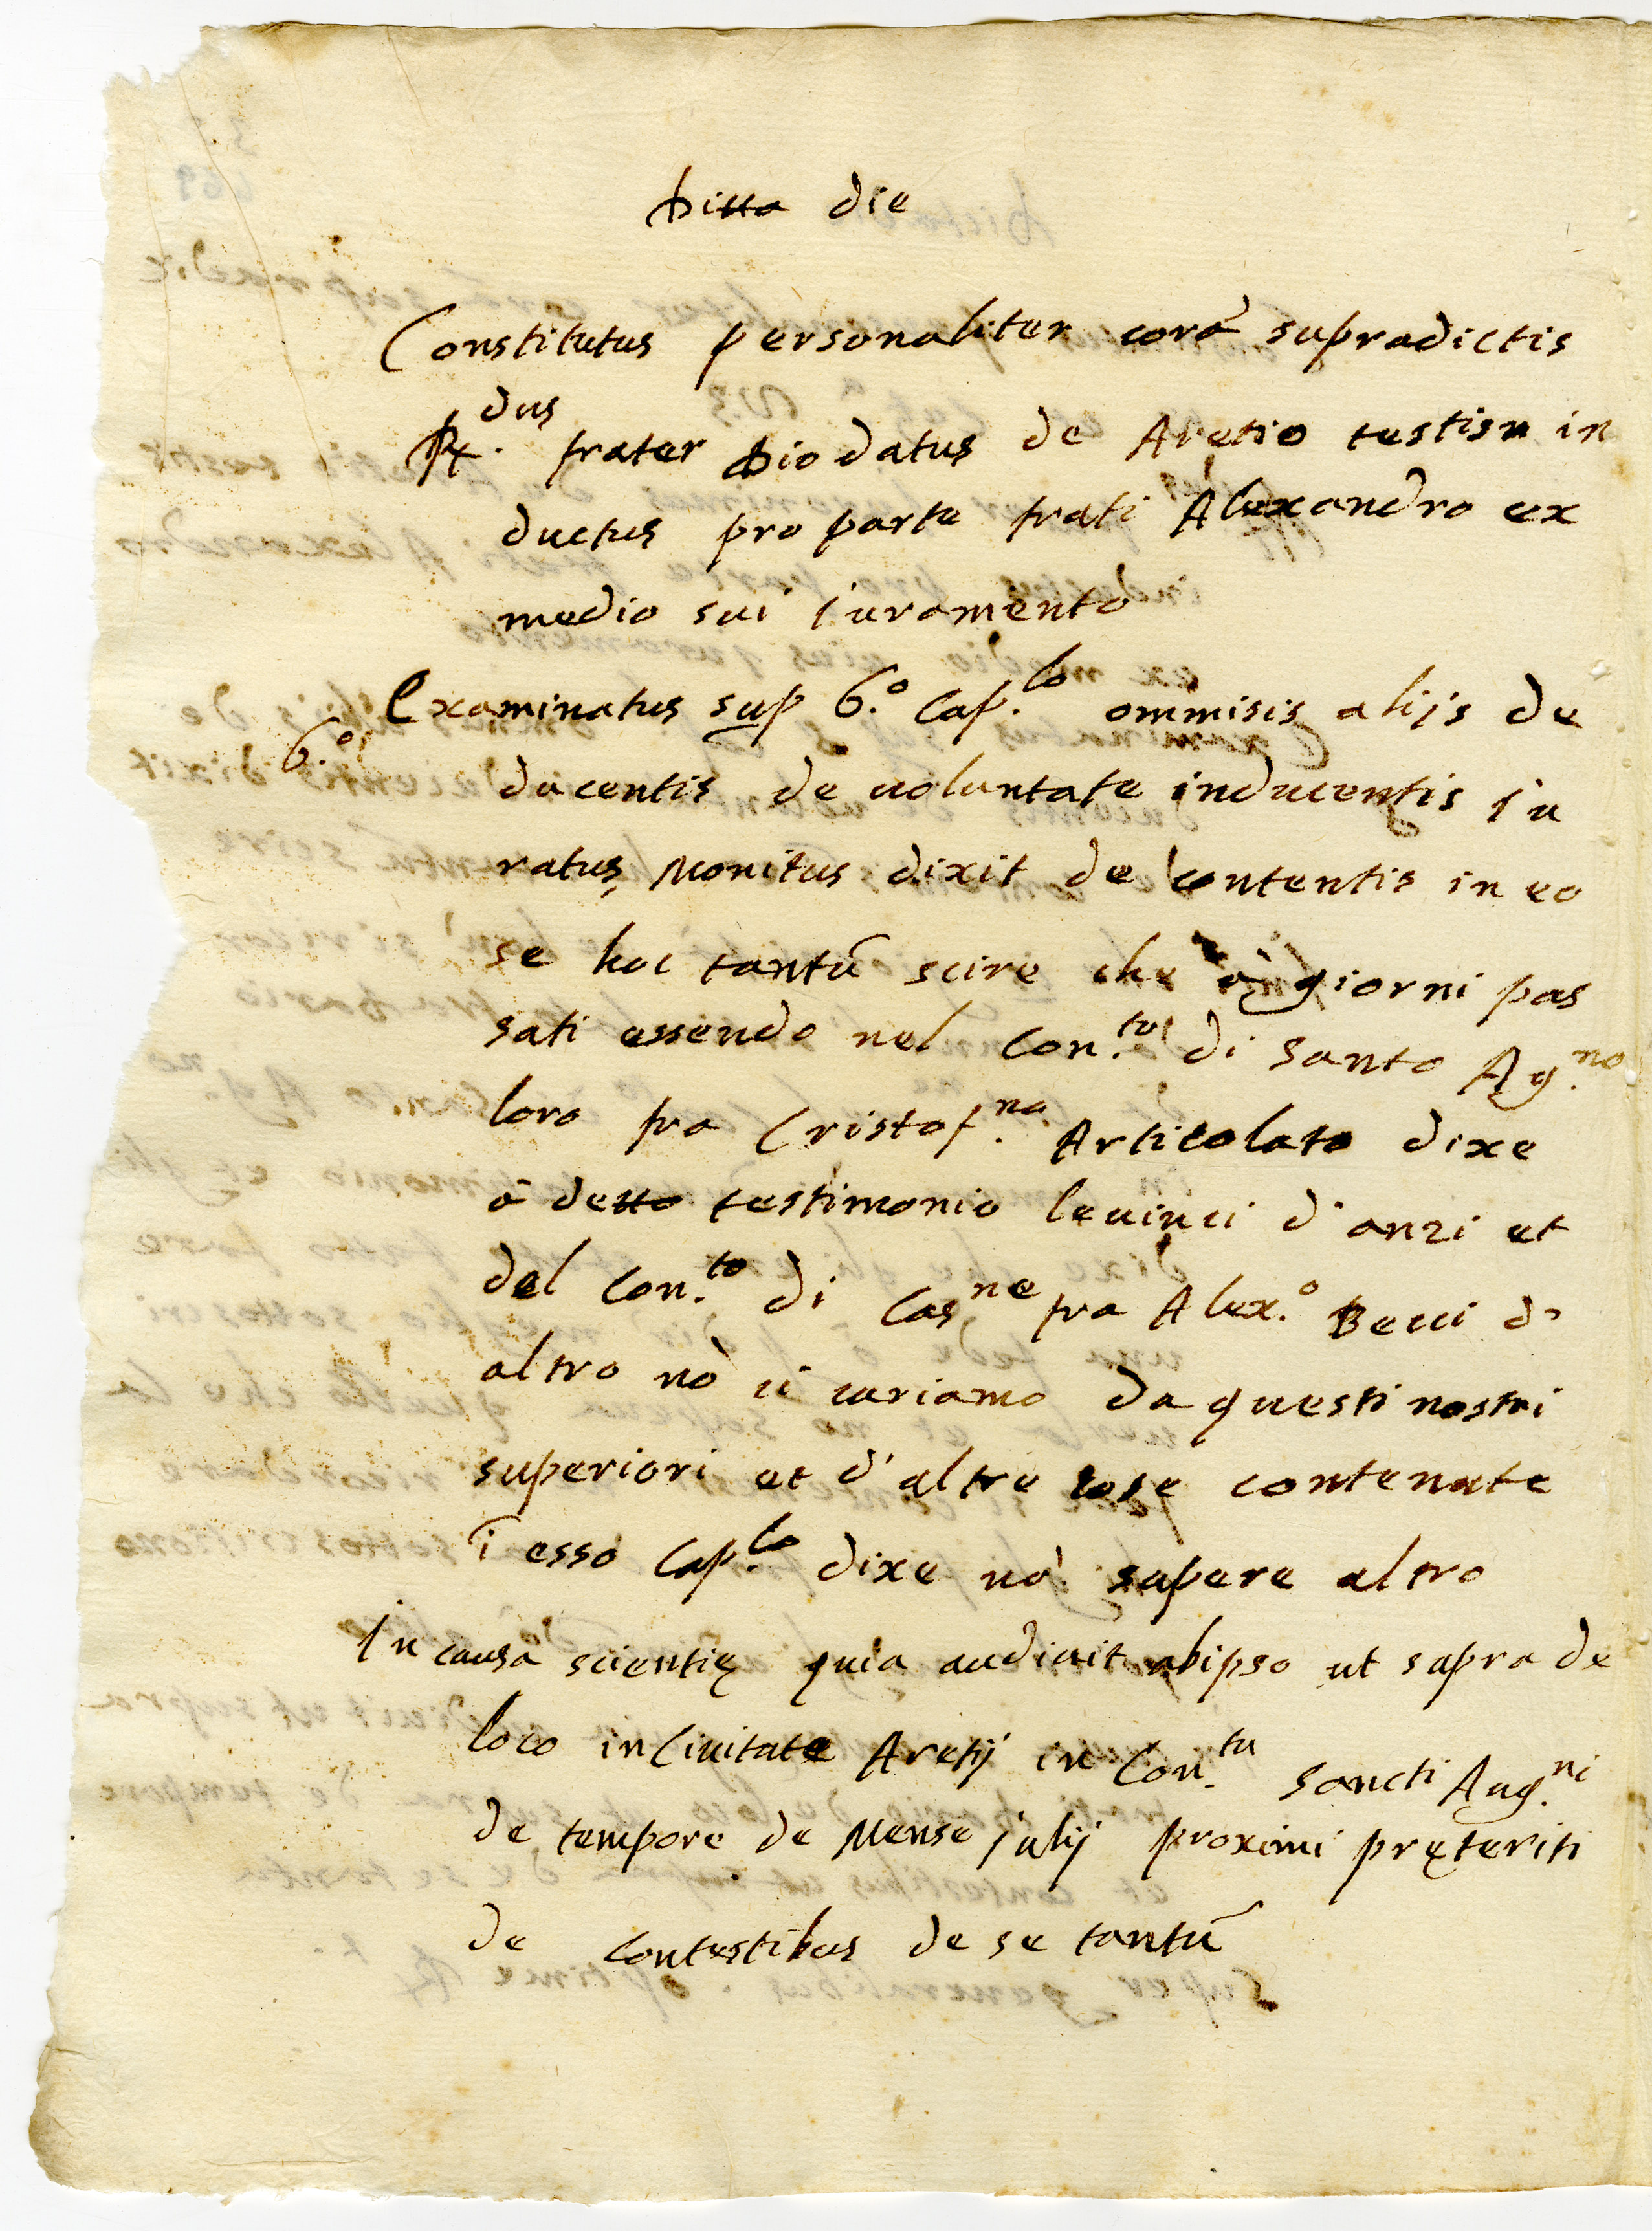 Ditta die
Constitutus personaliter corã supradictis
R.dus frater Diodatus de Aretio testisn in
ductus pro parte frati Alexandro ex
medio sui iuramento
Examinatus sup 6.o Cap.lo ommisis alijs de
6.o
ducentis de uoluntate inducentis iu
ratus, Monitus dixit de contentis in eo
se hoc tantũ scire che à giorni pas
sati essendo nel Con.to di santo Ag.no
loro fra Cristof.na Articolato dixe
à detto testimonio leuinci d'anzi et
del Con.to di Casne fra Alex.o Becci d'
altro nõ ci curiamo da questi nostri
superiori et d'altre cose contenute
ĩ esso Cap.lo dixe nõ sapere altro
In causa scientię quia audiuit abipso ut supra de
loco in Ciuitate Aretij in Con.tu sancti Aug.ni
de tempore de Mense julij proximi pręteriti
de contestibus de se tantũ